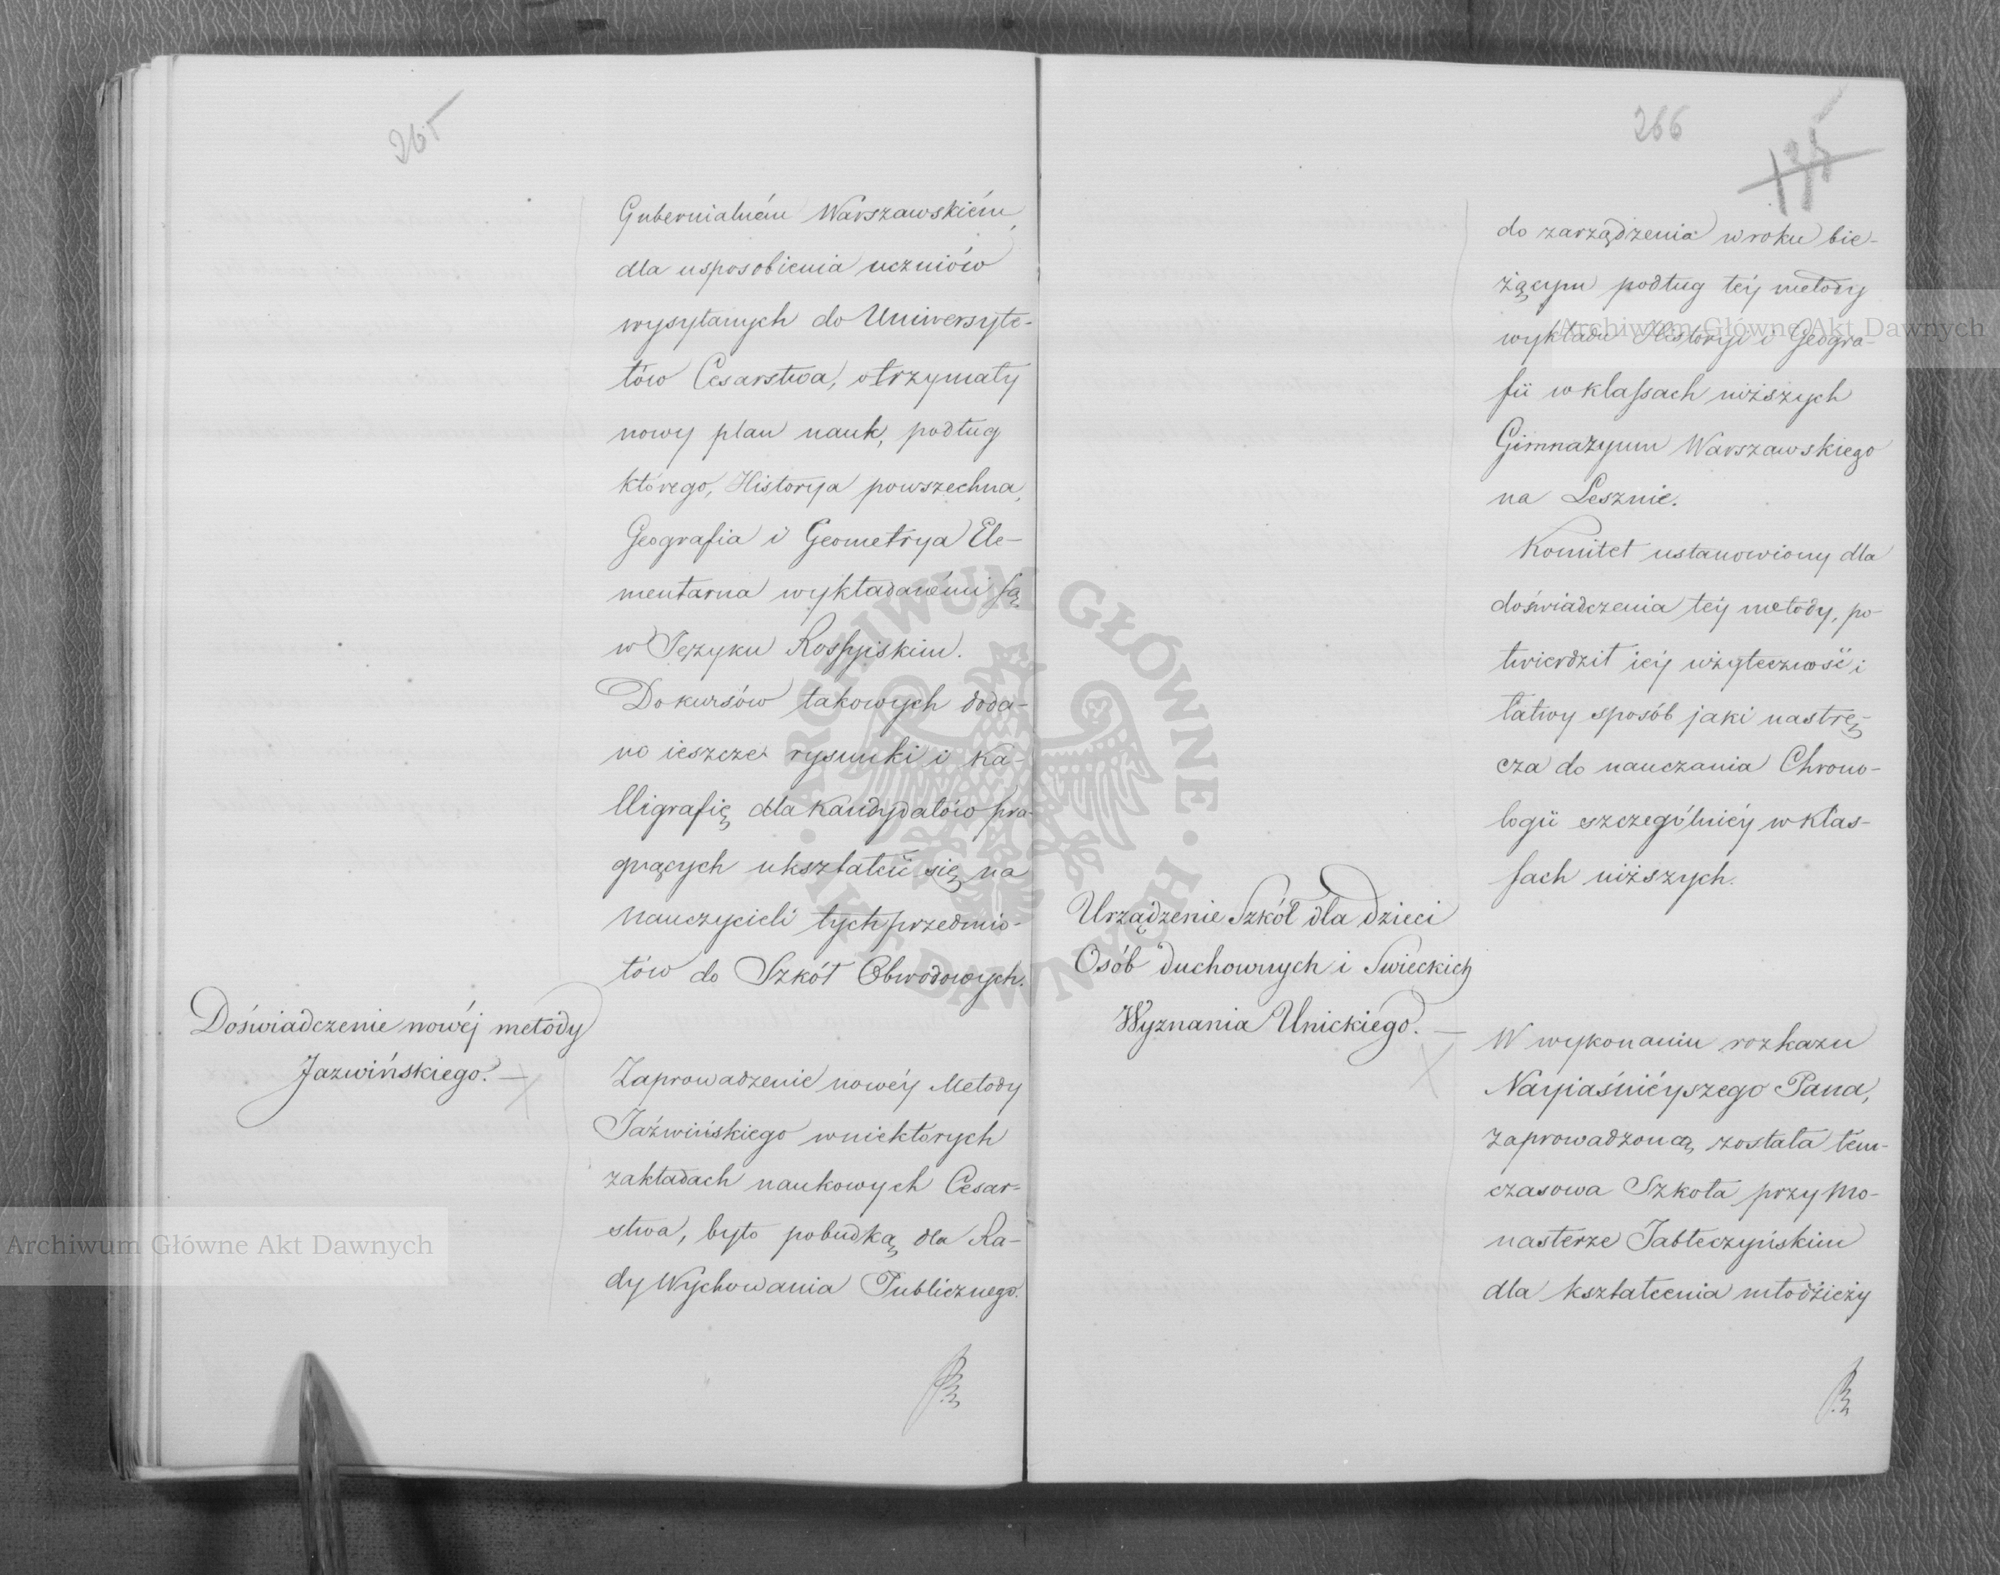 265
Gubernialném Warszawskiém,
dla usposobienia uczniów
wysyłanych do Uniwersyte-
tów Cesarstwa, otrzymały
nowy plan nauk, podług
którego, Historya powszechna,
Geografia i Geometrya Ele-
mentarna wykładanémi są
w Języku Rossyiskim.
Do kursów takowych doda-
no ieszcze rysunki i ka-
lligrafię dla kandydatów pra-
gnących ukształcić się na
nauczycieli tych przedmio-
tów do Szkół Obwodowych.
Doświadczenie nowéj metody
Jazwińskiego. —
Zaprowadzenie nowéy Metody
Jaźwińskiego w niektórych
zakładach naukowych Cesar-
stwa, było pobudką dla Ra-
dy Wychowania Publicznego.
266
135
do zarządzenia w roku bie-
żącym podług téy metody
wykładu Historyi i Geogra-
fii w klassach niższych
Gimnazyum Warszawskiego
na Lesznie.
Komitet ustanowiony dla
doświadczenia téy metody, po-
twierdził iéy użyteczność i
łatwy sposób jaki nastrę-
cza do nauczania Chrono-
logii szczególniéy w klas-
sach niższych.
Urządzenie Szkół dla dzieci
Osób duchownych i Swieckich
Wyznania Unickiego. —
W wykonaniu rozkazu
Nayiaśniéyszego Pana,
zaprowadzoną została tém-
czasowa Szkoła przy Mo-
nasterze Jabłeczyńskim
dla kształcenia młodzieży
Archiwum Główne Akt Dawnych
Archiwum Główne Akt Dawnych
ARCHIWUM GŁÓWNE AKT DAWNYCH